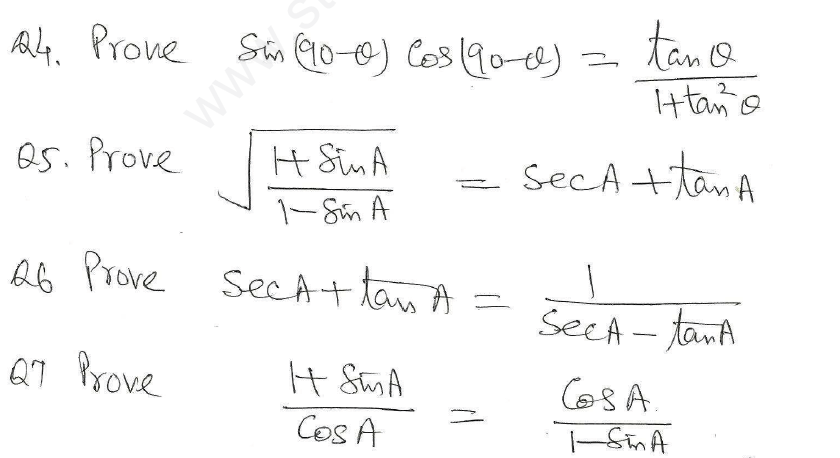 Q4. Prove Sin(90-θ) Cos(90-θ) = tanθ / 1+tan²θ
Q5. Prove √(1+SinA / 1-SinA) = SecA + tanA
Q6 Prove SecA + tanA = 1 / SecA - tanA
Q7 Prove 1+SinA / CosA = CosA. / 1-SinA
www.st